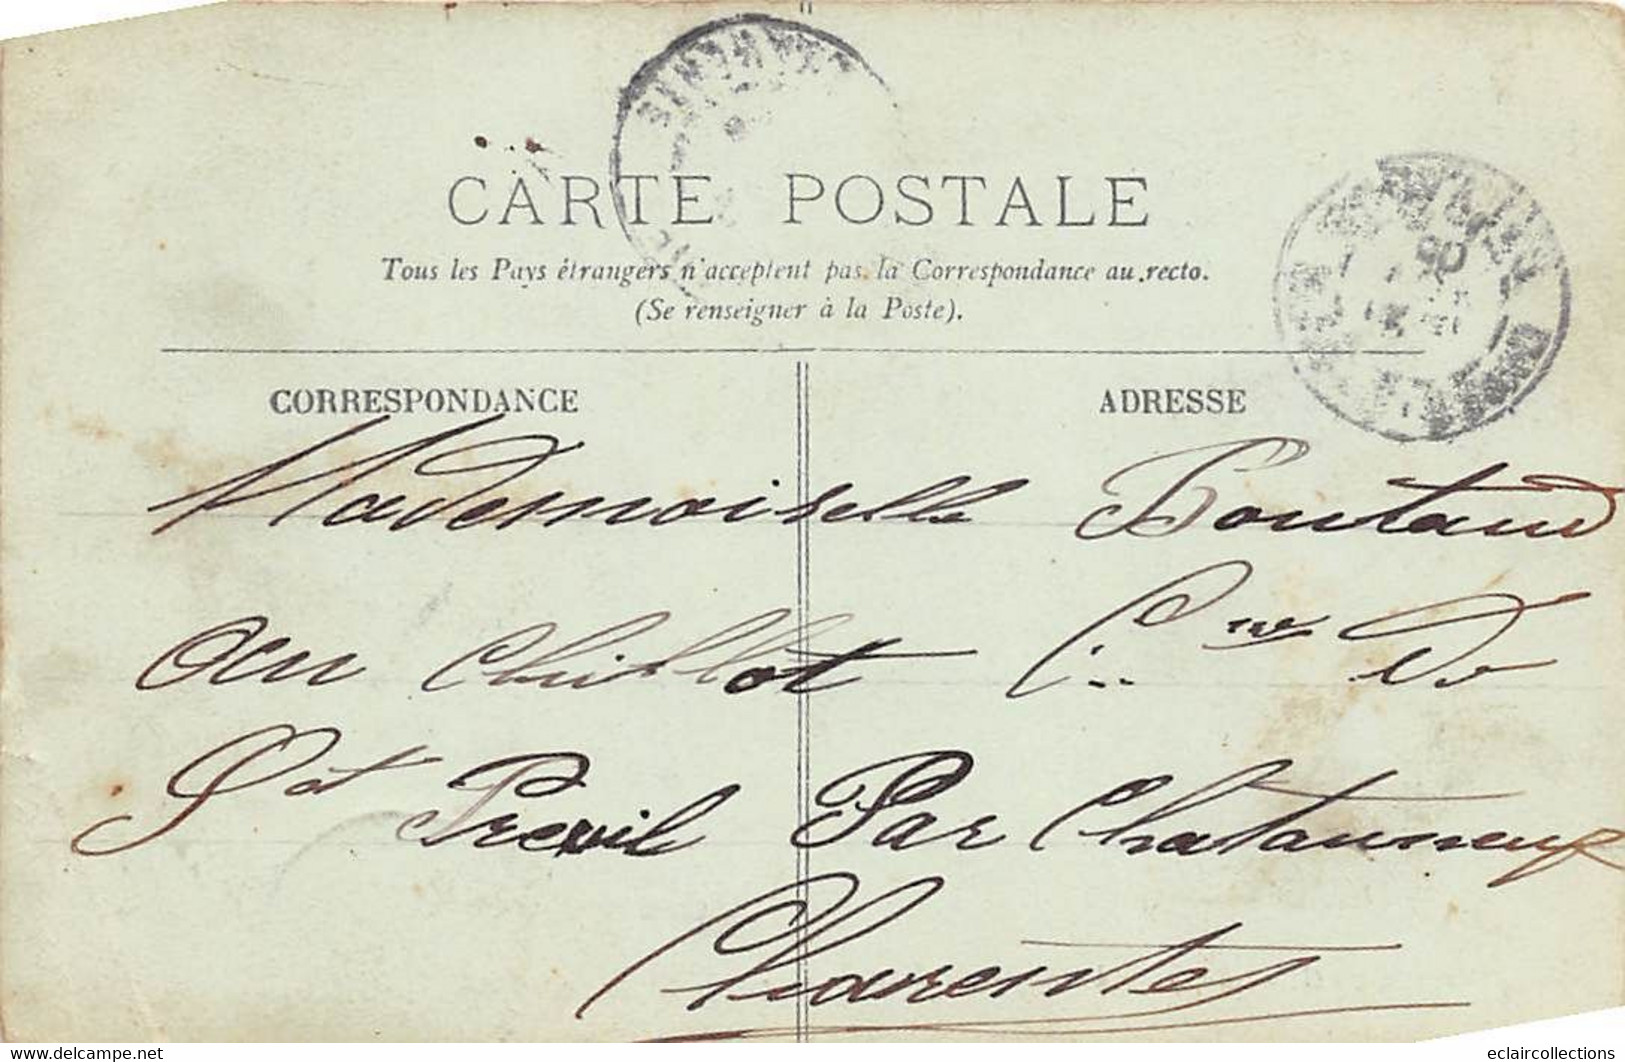 CARTE POSTALE
Tous les Pays étrangers n'acceptent pas la Correspondance au recto.
(Se renseigner à la Poste).
CORRESPONDANCE
ADRESSE
Mademoiselle Boutaud
au Chillot C.ne De
St Preuil Par Chatauneuf
Charentes
eclaircollections
www.delcampe.net